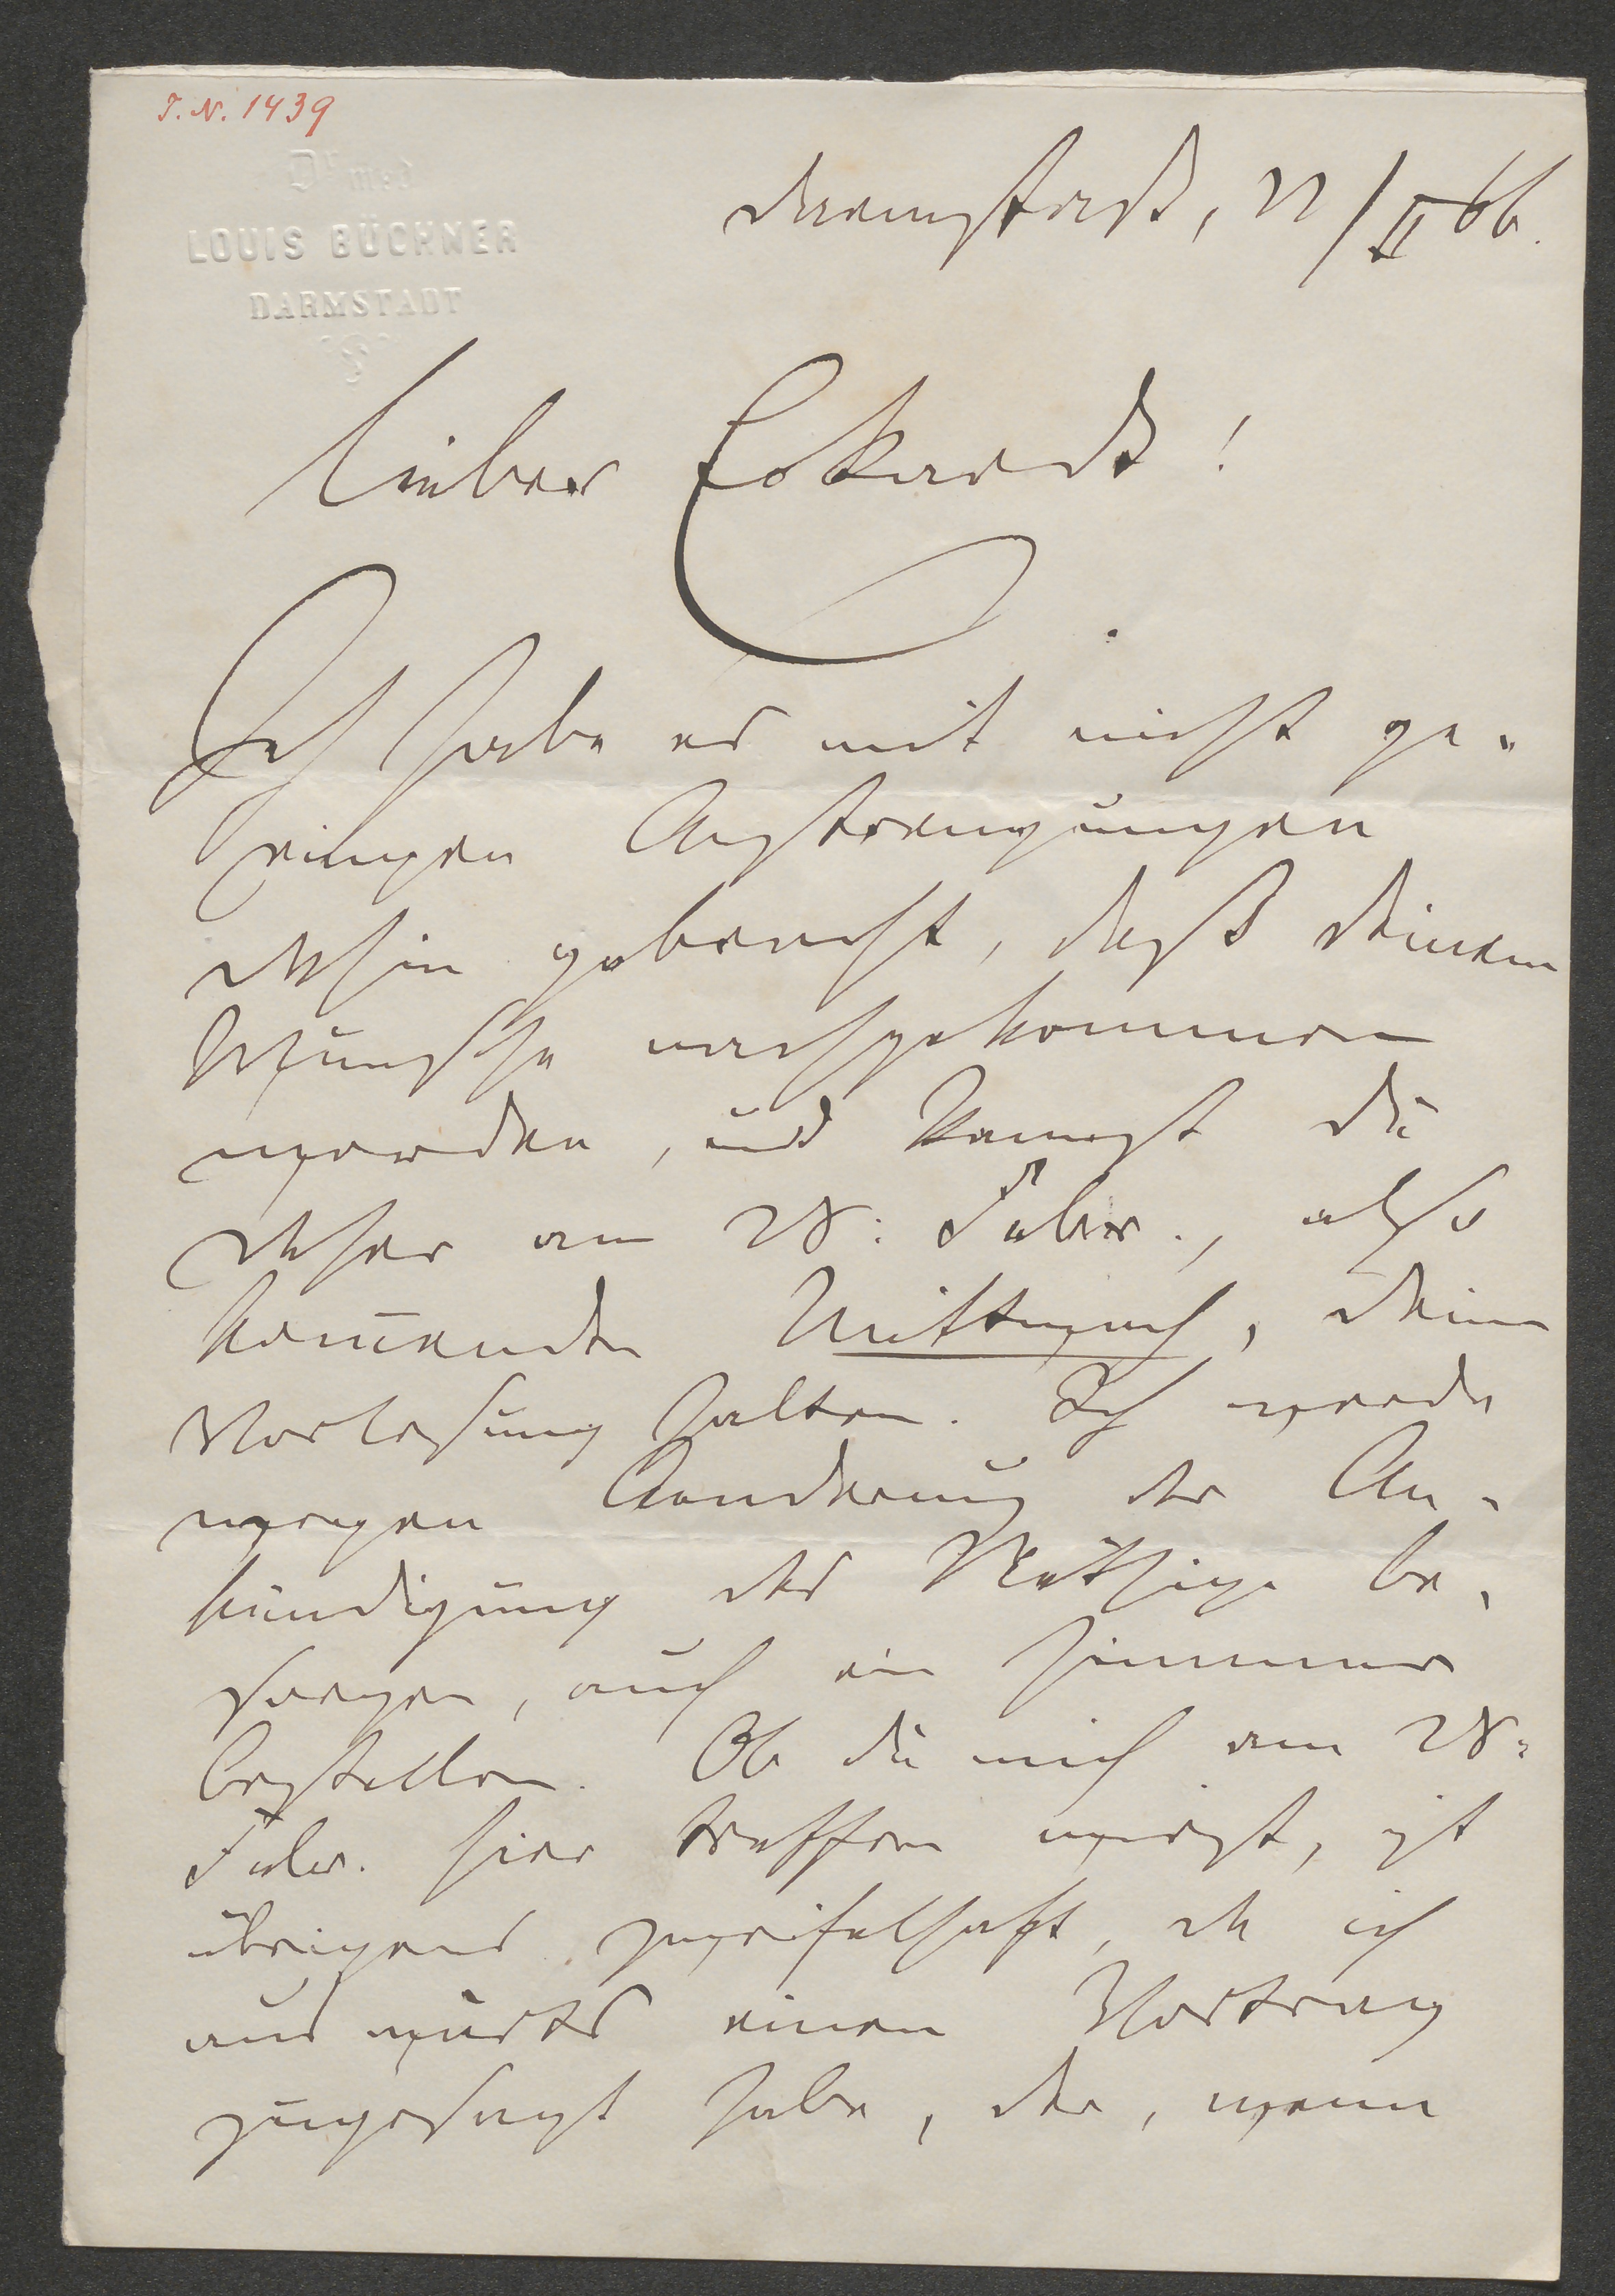 J. N. 1439
Dr med
LOUIS BÜCHNER
DARMSTADT
Darmstadt, 22/II 66.
Lieber Eckardt!
Ich habe es mit nicht ge-
ringen Anstrengungen
dahin gebracht, daß Deinem
Wunsche nachgekommen
worden, und kannst Du
daher am 28. Febr., also
kom̄enden Mittwoch, Deine
Vorlesung halten. Ich werde
wegen Aenderung der An-
kündigung das Nöthige be-
sorgen, auch ein Zimmer
bestellen. Ob Du mich am 28.
Febr. hier treffen wirst, ist
übrigens zweifelhaft, da ich
auswärts einen Vortrag
zugesagt habe, der, wenn